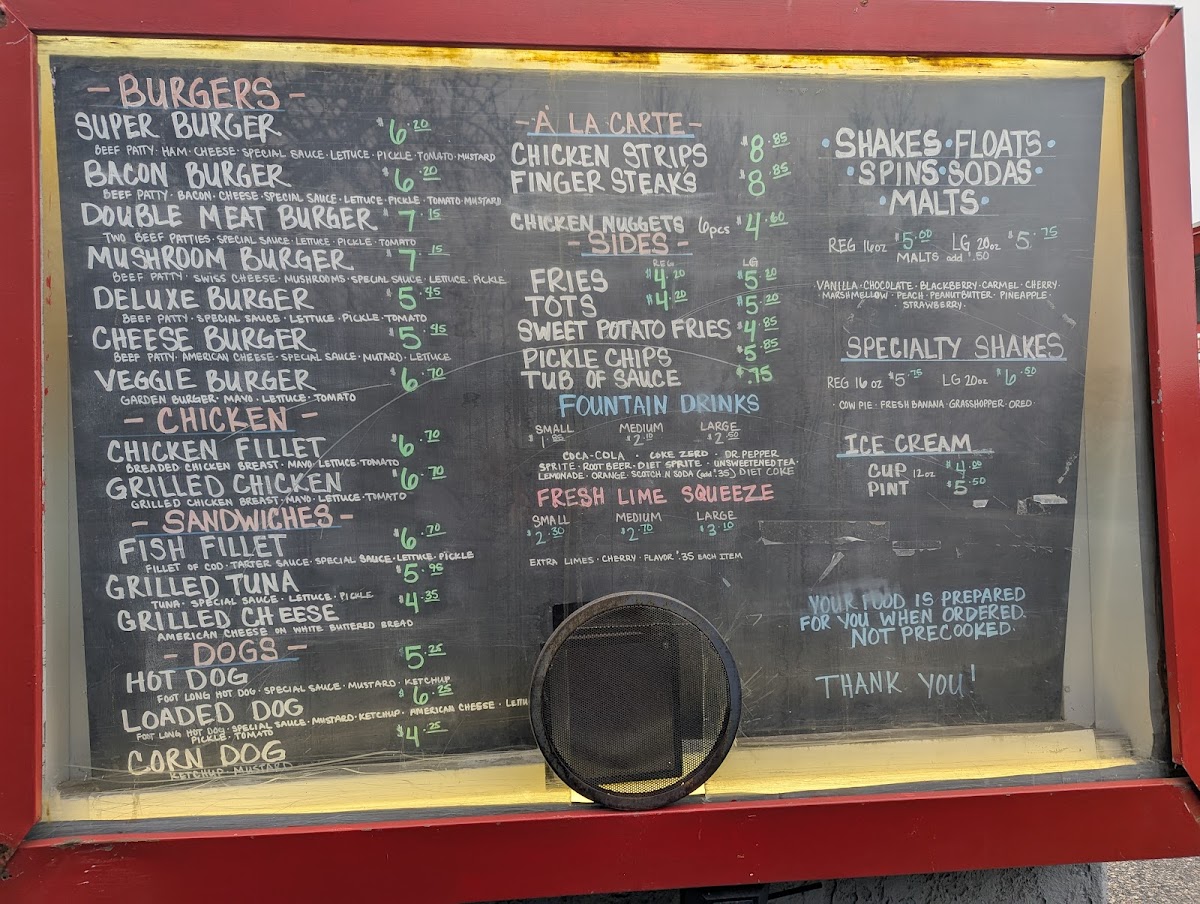 - BURGERS -
SUPER BURGER $6.20
BEEF PATTY · HAM · CHEESE · SPECIAL SAUCE · LETTUCE · PICKLE · TOMATO · MUSTARD
BACON BURGER $6.20
BEEF PATTY · BACON · CHEESE · SPECIAL SAUCE · LETTUCE · PICKLE · TOMATO · MUSTARD
DOUBLE MEAT BURGER $7.15
TWO BEEF PATTIES · SPECIAL SAUCE · LETTUCE · PICKLE · TOMATO
MUSHROOM BURGER $7.15
BEEF PATTY · SWISS CHEESE · MUSHROOMS · SPECIAL SAUCE · LETTUCE · PICKLE
DELUXE BURGER $5.45
BEEF PATTY · SPECIAL SAUCE · LETTUCE · PICKLE · TOMATO
CHEESE BURGER $5.45
BEEF PATTY · AMERICAN CHEESE · SPECIAL SAUCE · MUTARD · LETTUCE
VEGGIE BURGER $6.70
GARDEN BURGER · MAYO · LETTUCE · TOMATO
- CHICKEN -
CHICKEN FILLET $6.70
BREADED CHICKEN BREAST · MAYO · LETTUCE · TOMATO
GRILLED CHICKEN $6.70
GRILLED CHICKEN BREAST · MAYO · LETTUCE · TOMATO
- SANDWICHES -
FISH FILLET $6.70
FILLET OF COD · TARTER SAUCE · SPECIAL SAUCE · LETTUCE · PICKLE
GRILLED TUNA $5.95
TUNA · SPECIAL SAUCE · LETTUCE · PICKLE
GRILLED CHEESE $4.35
AMERICAN CHEESE ON WHITE BUTTERED BREAD
- DOGS -
HOT DOG $5.25
FOOT LONG HOT DOG · SPECIAL SAUCE · MUSTARD · KETCHUP
LOADED DOG $6.25
FOOT LONG HOT DOG · SPECIAL SAUCE · MUSTARD · KETCHUP · AMERICAN CHEESE ·
PICKLE · TOMATO
CORN DOG $4.25
KETCHUP MUSTARD
- À LA CARTE -
CHICKEN STRIPS $8.85
FINGER STEAKS $8.85
CHICKEN NUGGETS 6pcs $4.60
- SIDES -
REG LG
FRIES $4.20 $5.20
TOTS $4.20 $5.20
SWEET POTATO FRIES $4.85
PICKLE CHIPS $5.85
TUB OF SAUCE $.75
FOUNTAIN DRINKS
SMALL MEDIUM LARGE
$2.10
COCA-COLA · COKE ZERO · DR. PEPPER
SPRITE · ROOT BEER · DIET SPRITE · UNSWEETENED TEA ·
LEMONADE · ORANGE · SCOTCH N SODA (add .35) DIET COKE
FRESH LIME SQUEEZE
SMALL MEDIUM LARGE
$2.30 $2.70 $3.10
EXTRA LIMES · CHERRY · FLAVOR $.35 EACH ITEM
· SHAKES · FLOATS ·
· SPINS · SODAS ·
· MALTS ·
REG 16oz $5.00 LG 20oz $5.75
MALTS add .50
VANILLA · CHOCOLATE · BLACKBERRY · CARMEL · CHERRY
MARSHMELLOW · PEACH · PEANUTBUTTER · PINEAPPLE ·
STRAWBERRY.
SPECIALTY SHAKES
REG 16 oz $5.75 LG 20oz $6.50
· COW PIE · FRESH BANANA · GRASSHOPPER · OREO
ICE CREAM
CUP 12oz $4.00
PINT $5.50
YOUR FOOD IS PREPARED
FOR YOU WHEN ORDERED.
NOT PRECOOKED.
THANK YOU!